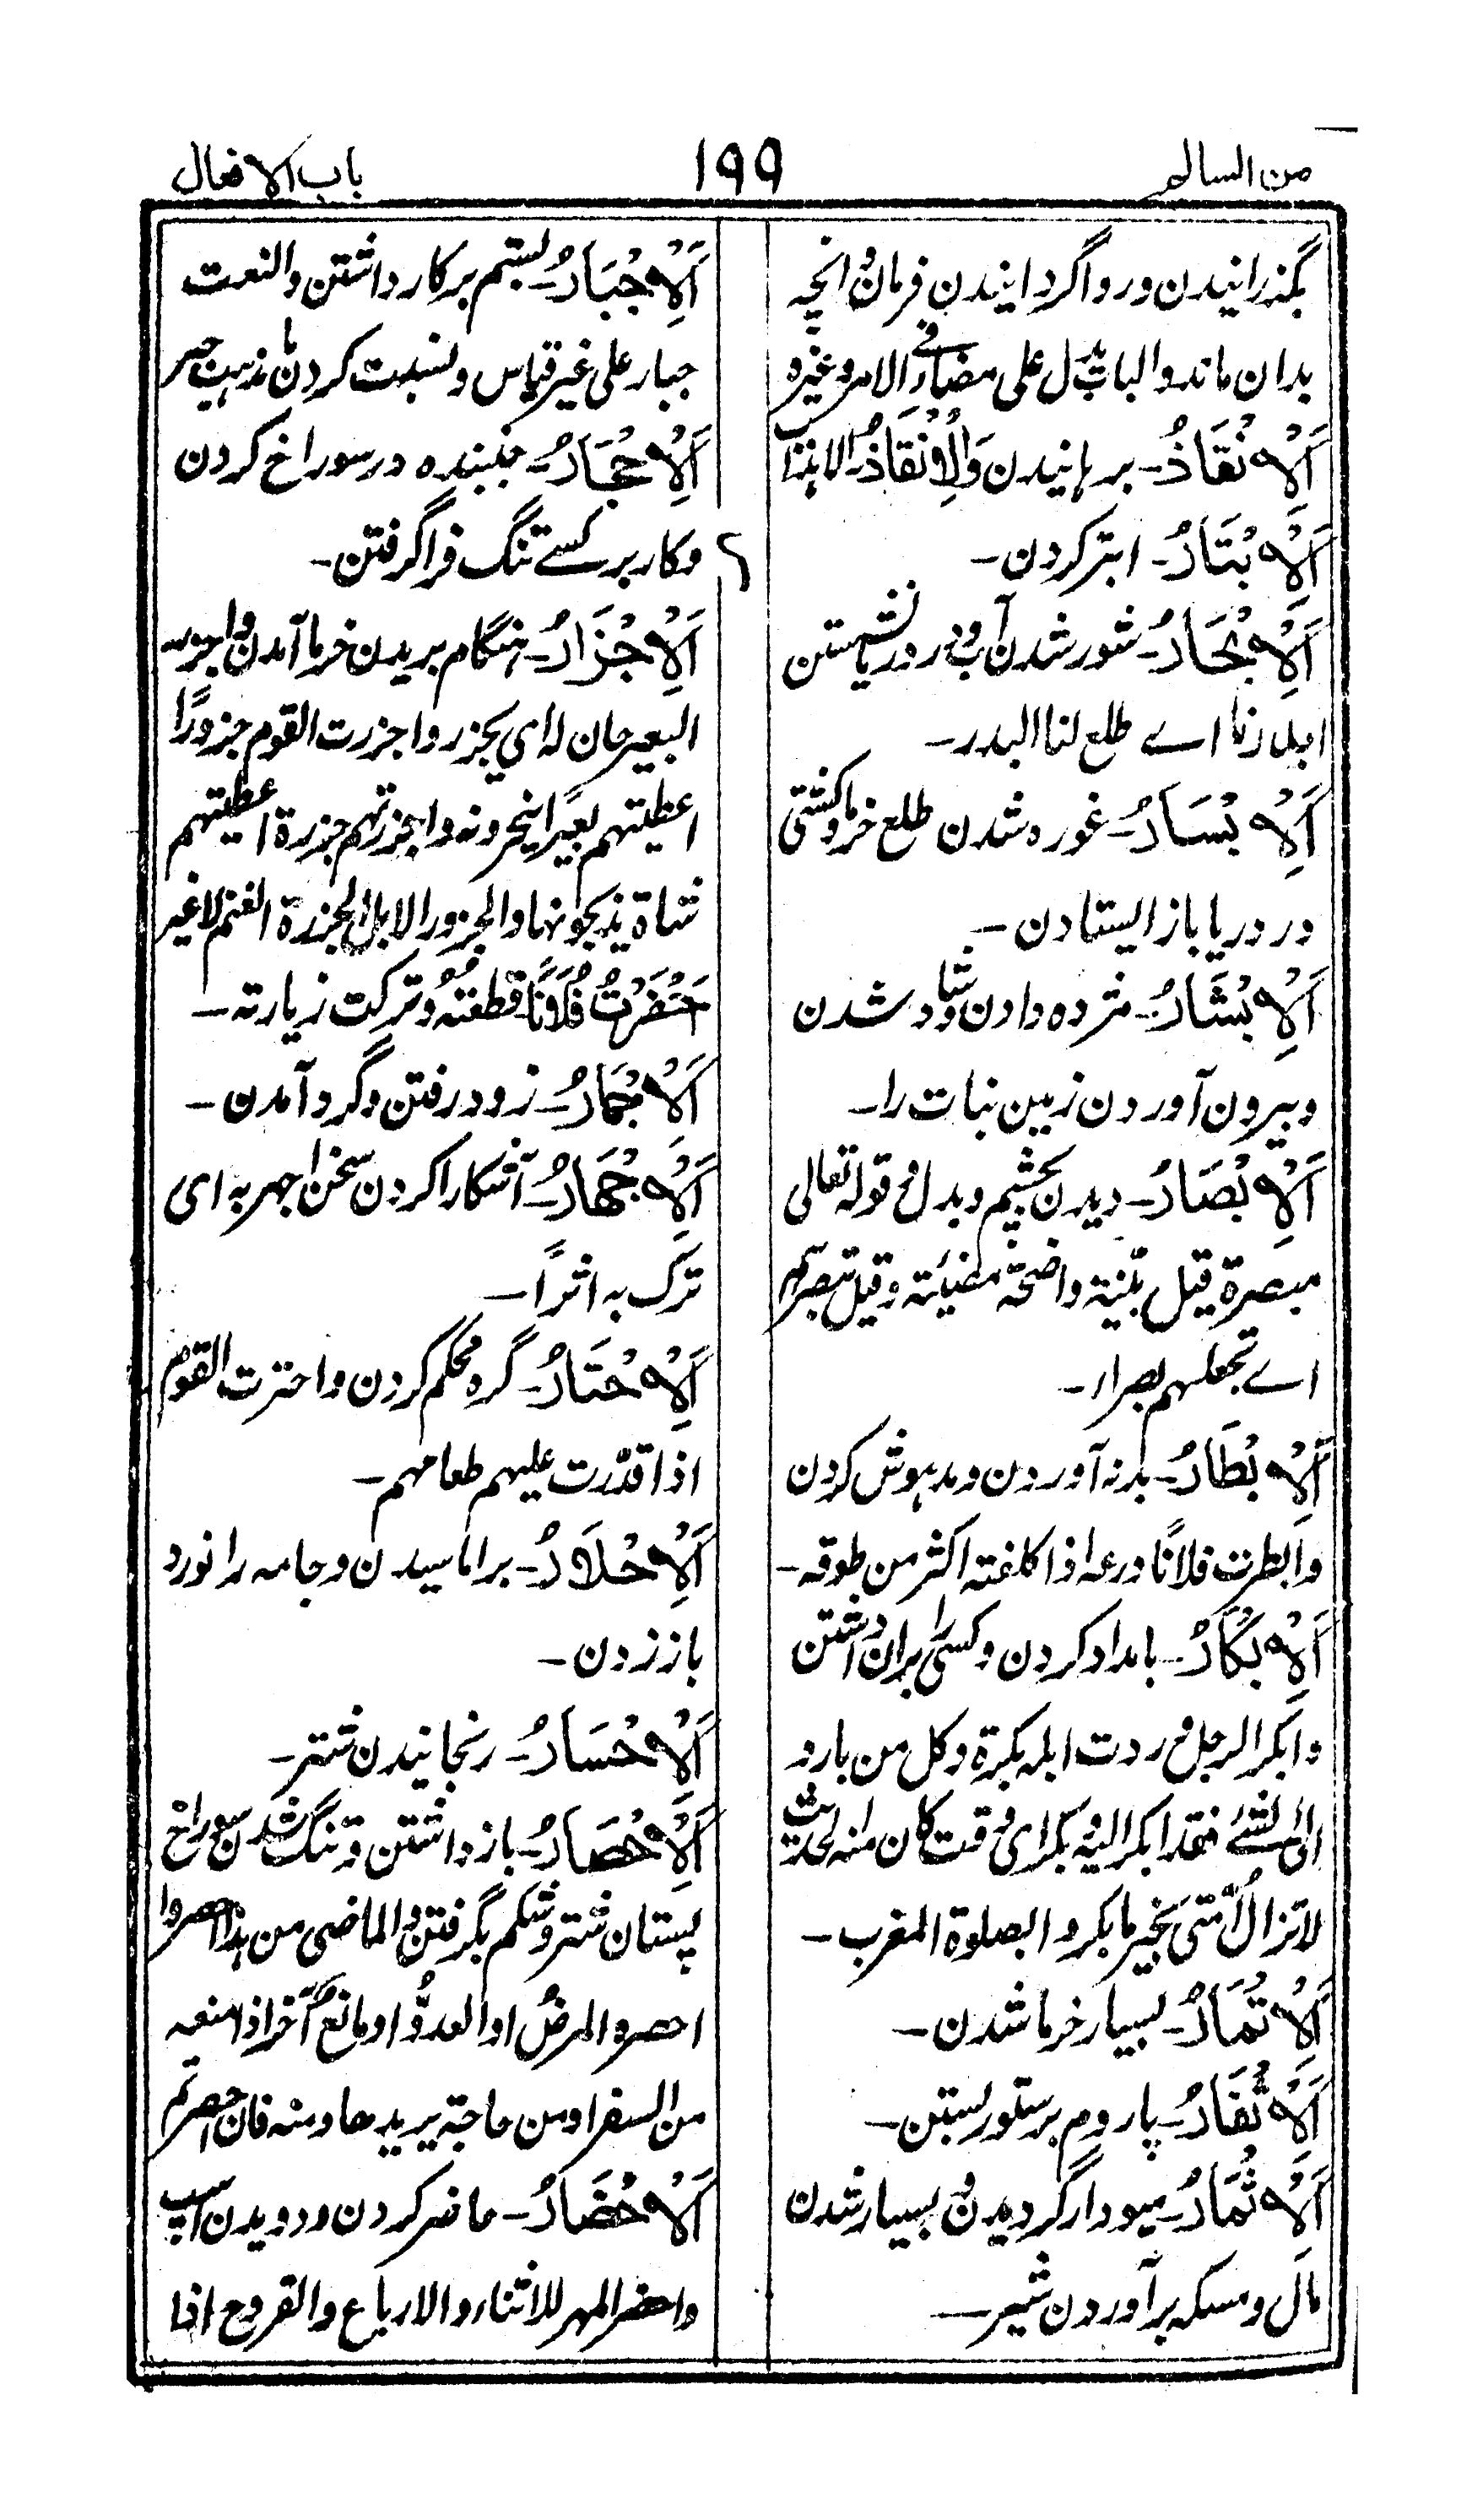 من السالم
۱۹۹
باب الافعال
بگذرانیدن و روا گردانیدن فرمان و انچه
بدان ماند و الباب یدل علی مضاء فی الامر و غیره
اَلْاِنْقَاذُ۔ برہانیدن وَالْاِنْقَاذُ
اَلْاِبْتَارُ۔ ابتر کردن۔
اَلْاِبْحَارُ۔ شور شدن آب و در دریا نشستن
ابدرنا اے طلع لنا البدر۔
اَلْاِبْسَارُ۔ غوره شدن طلع خرما و کشتی
در دریا باز ایستادن۔
اَلْاِبْشَارُ۔ مژده دادن و شاد شدن
و بیرون آوردن زمین نبات را۔
اَلْاِبْصَارُ۔ دیدن بچشم و بدل و قوله تعالی
مبصرة قیل بیّنة واضحة مضیئة و قیل تبصرهم
اے تجعلهم بصراء۔
اَلْاِبْطَارُ۔ بدنه آوردن و مدہوش کردن
و ابطرت فلانًا ذرعه اذا کلفته اکثر من طوقه۔
اَلْاِبْکَارُ۔ بامداد کردن و کسی را بران داشتن
و ابکر الرجل وردت ابله بکرة و کل من بادر
الی الشئ فقد ابکر الیه و بکر ای وقت کان منه الحدیث
لا تزال اُمّتی بخیر ما بکروا بصلوة المغرب۔
اَلْاِتْمَارُ۔ بسیار خرما شدن۔
اَلْاِثْفَارُ۔ پاردم بر ستور بستن۔
اَلْاِثْمَارُ۔ میوه دار گردیدن و بسیار شدن
مال و مسکه برآوردن شیر۔
اَلْاِجْبَارُ۔ بستم بر کار داشتن و النعت
جبار علی غیر قیاس و نسبت کردن با مذہب جبر
اَلْاِجْحَارُ۔ جنبنده در سوراخ کردن
و کار بر کسے تنگ فرا گرفتن۔
اَلْاِجْزَارُ۔ ہنگام بریدن خرما آمدن و اجزر
البعیر حان له ای یجزر و اجزرت القوم جزورًا
اعطیتهم بعیرًا ینحرونه و اجزرتهم جزرة اعطیتهم
شاة یذبحونها و الجزور الابل و الجزرة الغنم لا غیر
اَجْفَرْتُ فُلَانًا قطعتُه و ترکت زیارته۔
اَلْاِجْمَارُ۔ زود رفتن و گرد آمدن۔
اَلْاِجْهَارُ۔ آشکارا کردن سخن اجهر به ای
ترک به اثرًا۔
اَلْاِحْتَارُ۔ گره محکم کردن و احترت القوم
اذا قدّرت علیهم طعامهم۔
اَلْاِحْدَارُ۔ براماسیدن و جامه را نورد
باز زدن۔
اَلْاِحْسَارُ۔ رنجانیدن شتر۔
اَلْاِحْصَارُ۔ باز داشتن و تنگ شدن سوراخ
پستان شتر و شکم بگرفتن و الماضی من ہذا احصر و
احصره المرضُ او العدوُّ او مانعٌ آخر اذا منعه
من السفر او من حاجة یریدها و منه فان احصرتم
اَلْاِحْضَارُ۔ حاضر کردن و دویدن اسپ
و احضر المهر للاثناء و الارباع و القروح اذا